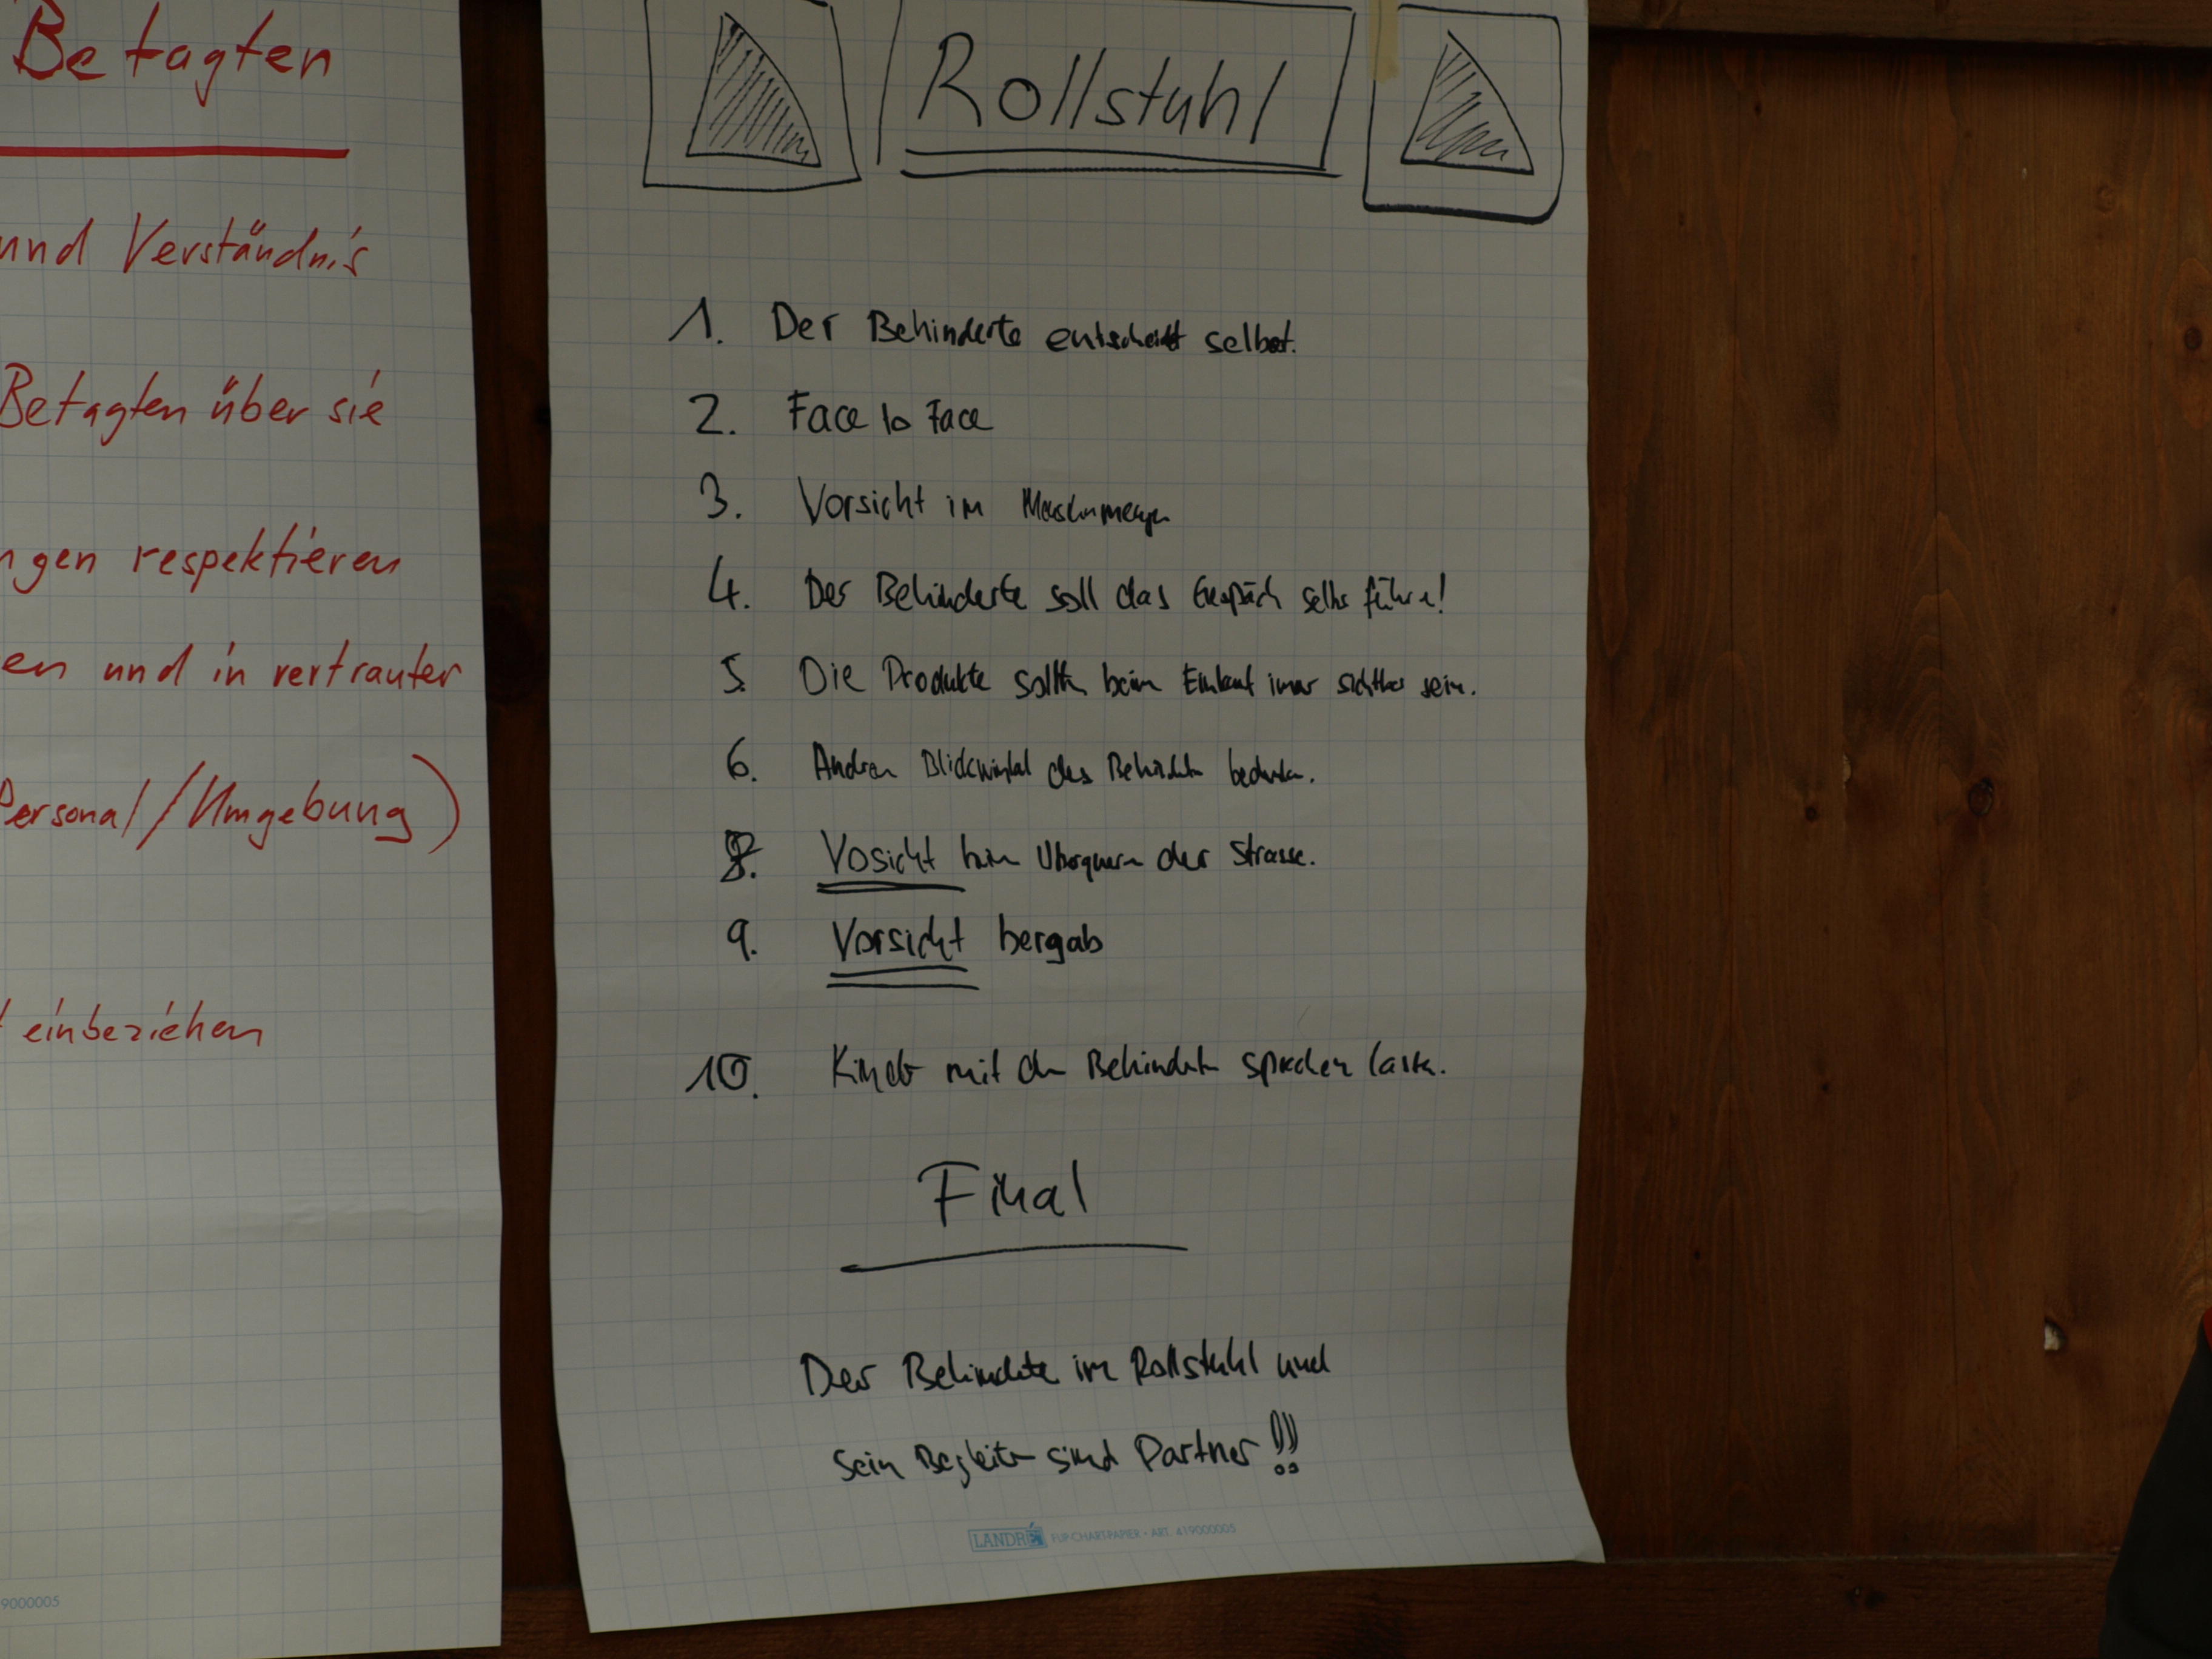 Betagten
und Verständnis
Betagten über sie
ngen respektieren
en und in vertrauter
Personal/Umgebung)
einbeziehen
9000005
Rollstuhl
1. Der Behinderte entscheidt selbst.
2. Face to Face
3. Vorsicht im
4. Der Behinderte soll das führen!
5. Die Produkte sollten beim Einkauf sichtbar sein.
6. Andren Blickwinkel des Behinderten bedenken.
8. Vosicht beim Überquern der Strasse.
9. Vorsicht bergab
10. Kinder mit den Behinderten sprechen lassen.
Final
Der Behinderte im Rollstuhl und
sein Begleiter sind Partner!!!
LANDRÉ FLIP-CHART-PAPIER - ART. 419000005